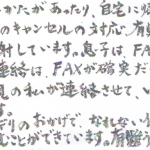 かたがあったり、自宅に帰
のキャンセルの対応、有
射しています。息子は、FA
連絡は、FAXが確実だ
見の私が連絡させて、い
す。
デりのおかげで、なれない
ことができています。有難う